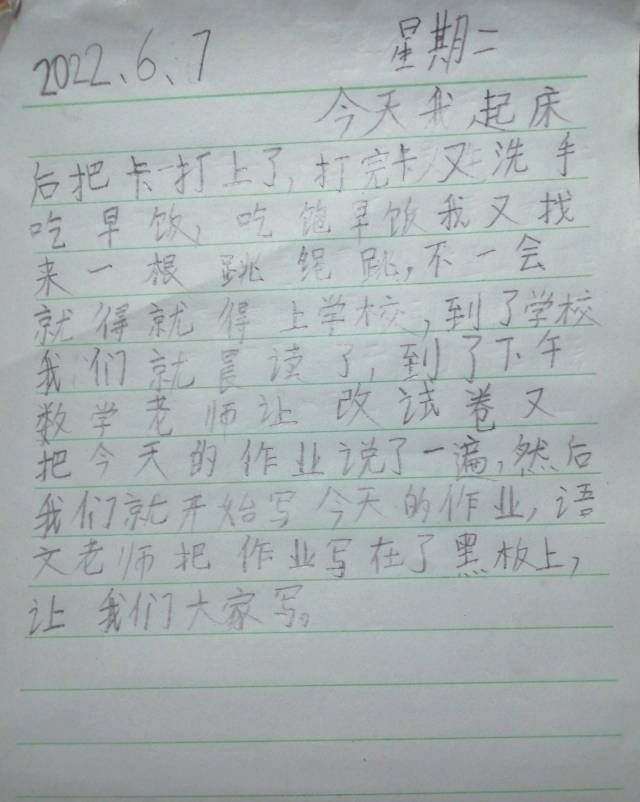 2022、6、7 星期二
今天我起床
后把卡打上了,打完卡又洗手
吃早饭,吃饱早饭我又找
来一根跳绳跳,不一会
就得就得上学校,到了学校
我们就晨读了,到了下午
数学老师让改试卷又
把今天的作业说了一遍,然后
我们就开始写今天的作业,语
文老师把作业写在了黑板上,
让我们大家写。